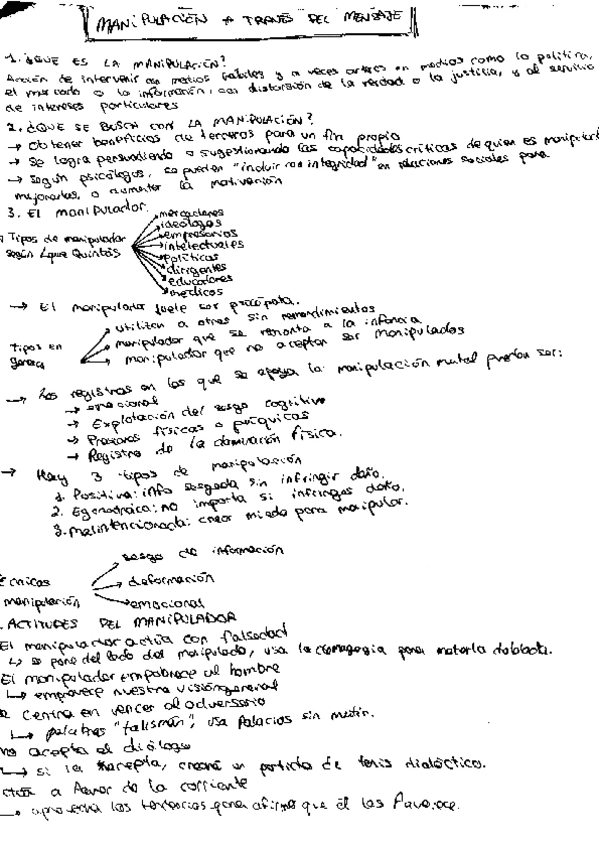 MANIPULACIÓN A TRAVÉS DEL MENSAJE
1. ¿QUE ES LA MANIPULACIÓN?
Acción de intervenir con medios hábiles y a veces arteros en medios como la política,
el mercado o la información, con distorsión de la verdad o la justicia, y al servicio
de intereses particulares
2. ¿QUE SE BUSCA CON LA MANIPULACIÓN?
→ Obtener beneficios de terceros para un fin propio
→ Se logra persuadiendo o sugestionando las capacidades críticas de quien es manipulado
→ Según psicólogos, se pueden "incluir con integridad" en relaciones sociales para
mejorarlas, o aumentar la motivación
3. El manipulador.
Tipos de manipulador
según López Quintás
mercaderes
ideólogos
empresarios
intelectuales
políticos
dirigentes
educadores
médicos
→ El manipulador suele ser psicópata.
Tipos en
general
utilizan a otros sin remordimientos
manipulador que se remonta a la infancia
manipulador que no aceptan ser manipulados
→ Los registros en los que se apoya la manipulación mental pueden ser:
→ emocional
→ Explotación del sesgo cognitivo
→ Presiones físicas o psíquicas
→ Registro de la dominación física.
→ Hay 3 tipos de manipulación
1. Positiva: info sesgada sin infringir daño.
2. Egocéntrica: no importa si infringes daño.
3. Malintencionada: crear miedo para manipular.
cnicas
manipulación
sesgo de información
deformación
emocional
. ACTITUDES DEL MANIPULADOR
El manipulador actúa con falsedad
↳ se pone del lado del manipulado, usa la demagogia para meterla doblada.
El manipulador empobrece al hombre
↳ empobrece nuestra visión general
se centra en vencer al adversario
↳ palabras "talismán", usa palacios sin medir.
no acepta el diálogo
↳ si la acepta, creará un partido de tenis dialéctico.
a favor de la corriente
↳ aprovecha las tendencias para afirmar que él las favorece.